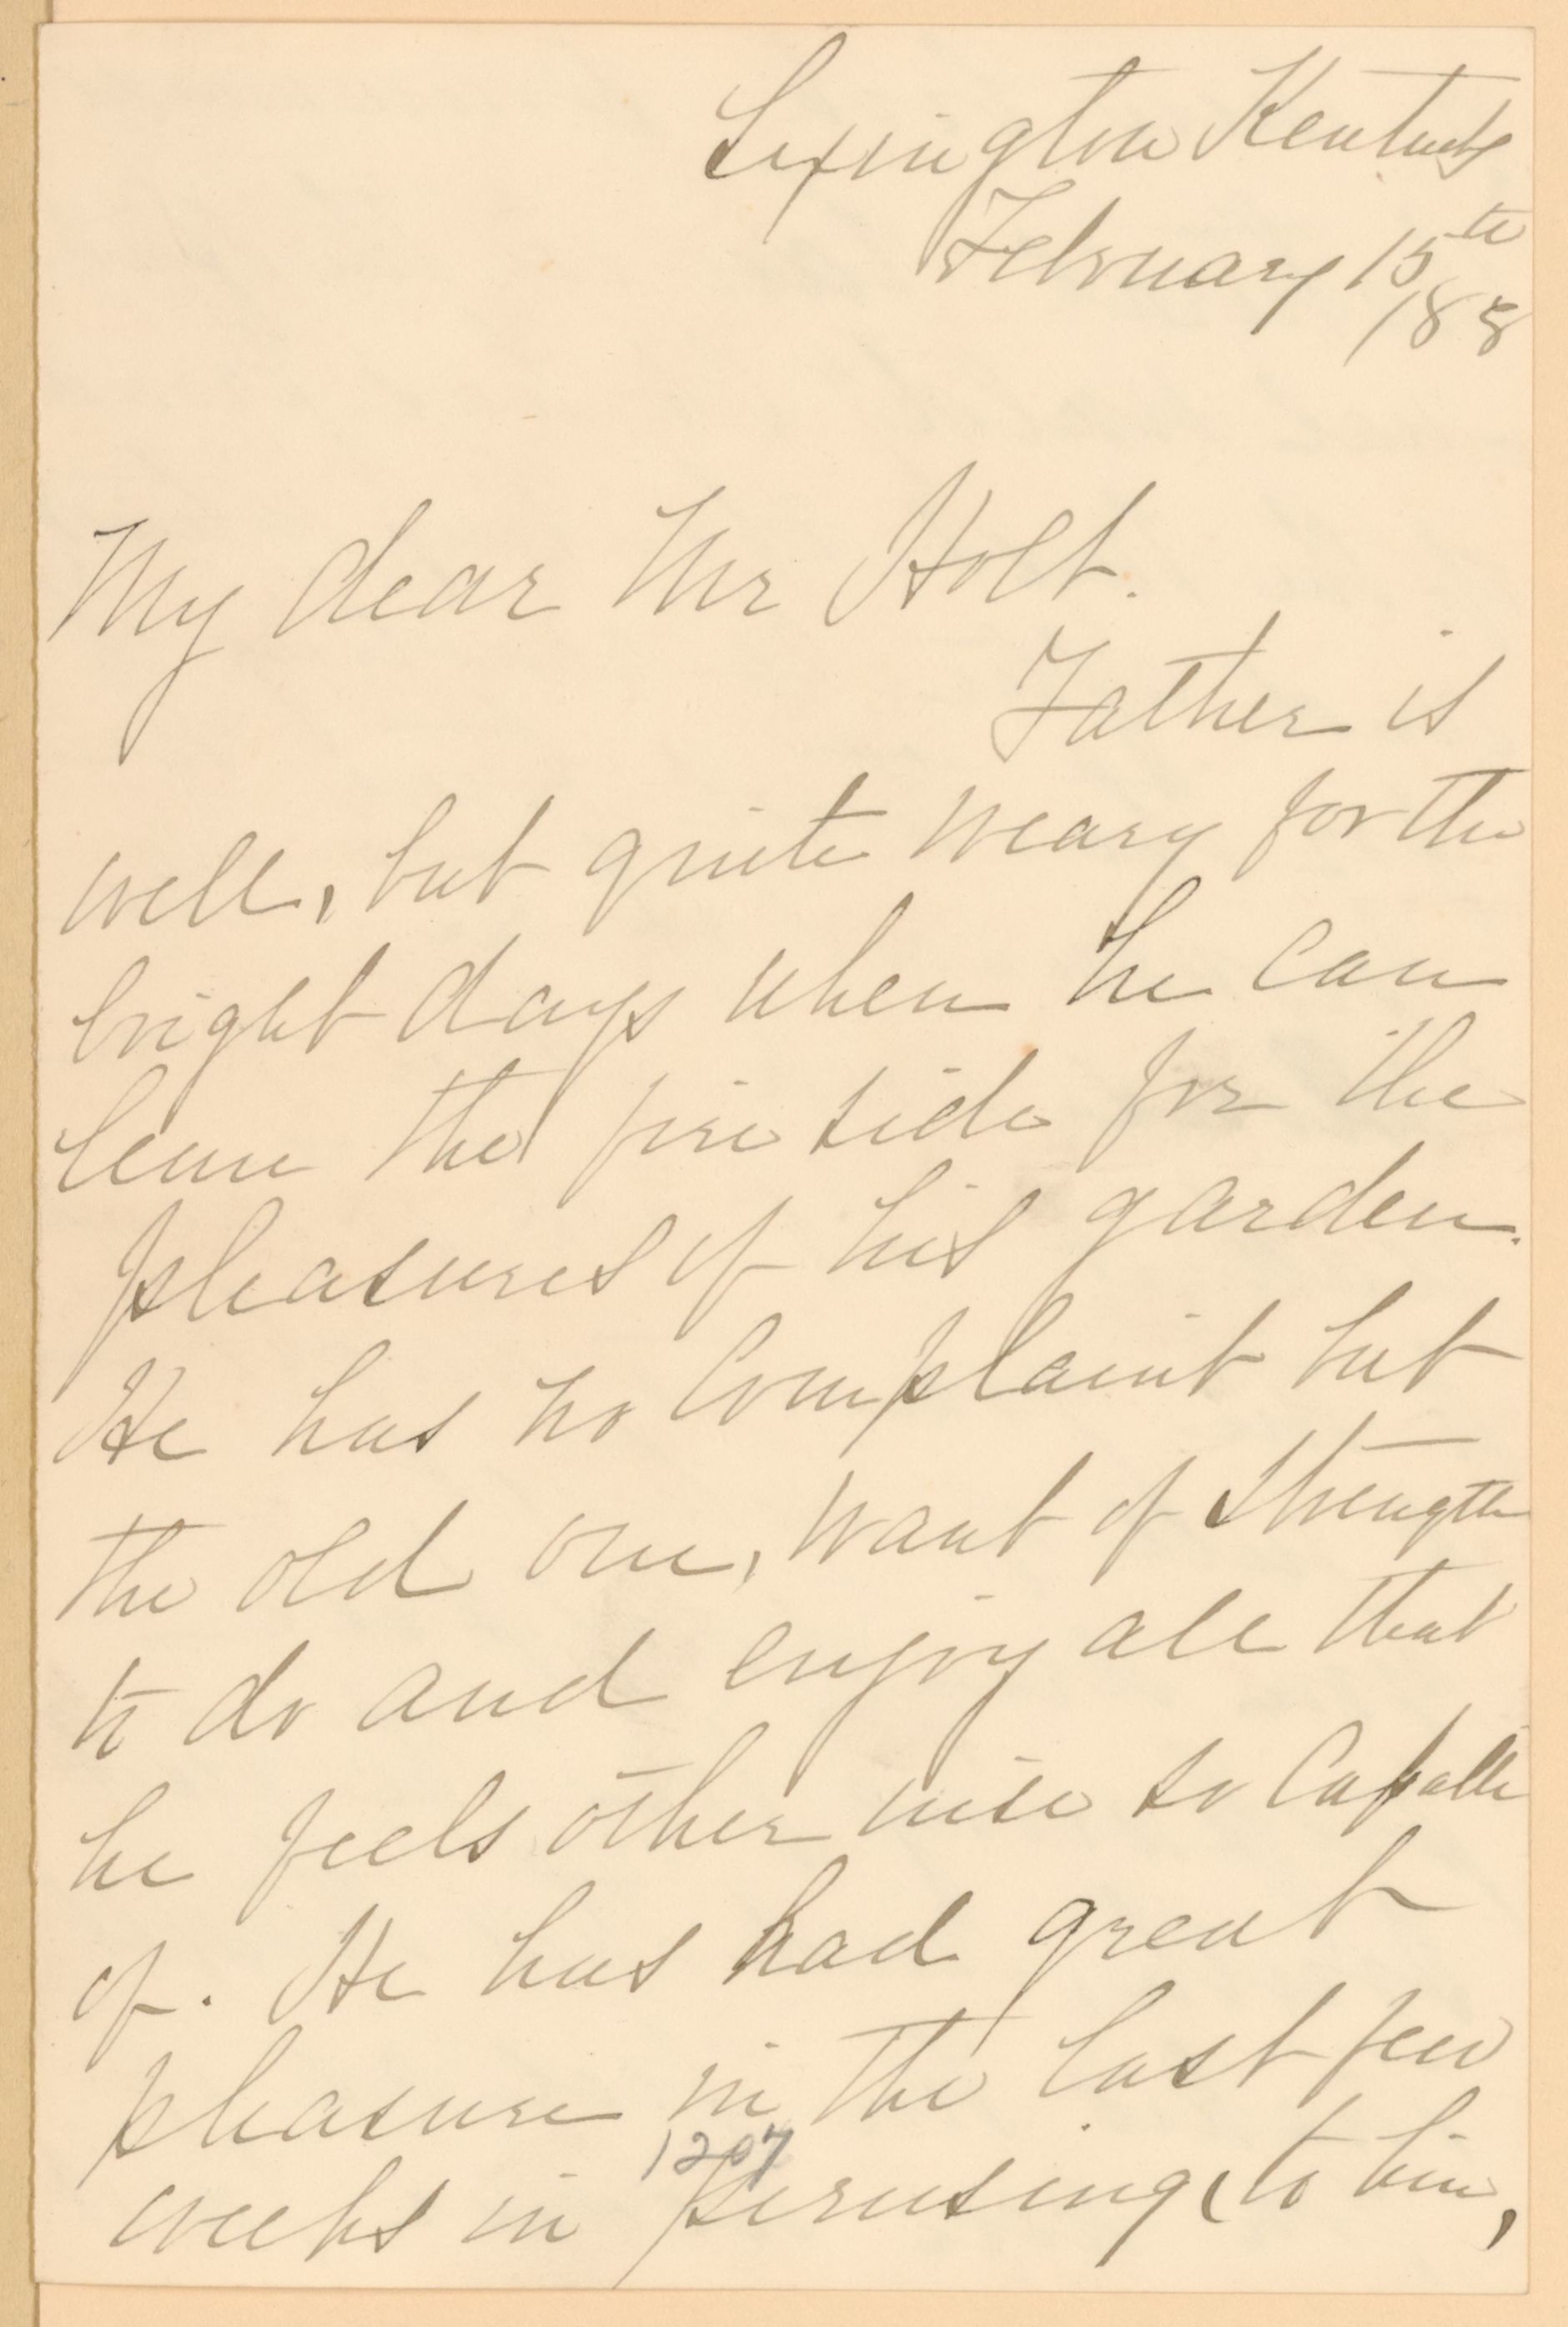 Lexington Kentucky
February 15th
188
My dear Mr Holt.
Father is
well, but quite weary for the
bright days when he can
leave the fire side for the
pleasures of his garden.
He has no complaint but
the old one, want of strength
to do and enjoy all that
he feels other wise so capable
of. He has had great
pleasure in the last few
1207
weeks in perusing (to him,